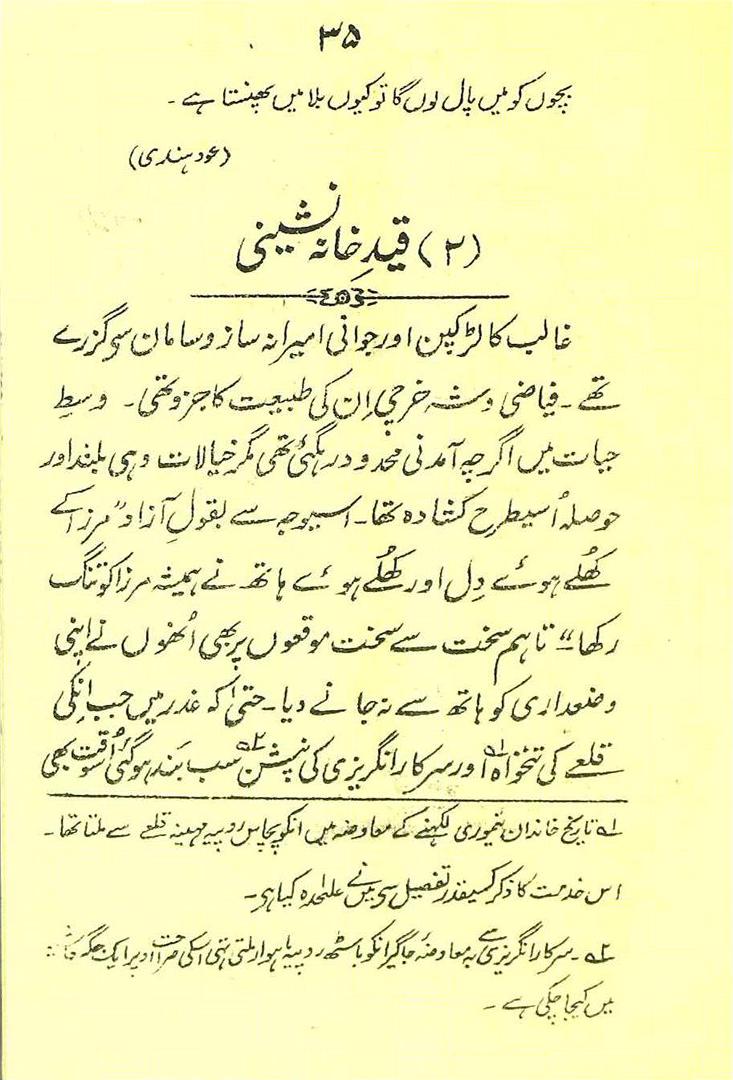 ۳۵
بچوں کو میں پال لوں گا تو کیوں بلا میں پھنستا ہے۔
(عود ہندی)
(۲) قیدِ خانہ نشینی
غالب کا لڑکپن اور جوانی امیرانہ ساز و سامان سو گزرے
تھے۔ فیاضی و شہ خرچی اِن کی طبیعت کا جزو تھی۔ وسطِ
حیات میں اگرچہ آمدنی محدود رہگئی تھی مگر خیالات وہی بلند اور
حوصلہ اُسیطرح کشادہ تھا۔ اسیوجہ سے بقولِ آزاد "مرزا کے
کھُلے ہوئے دِل اور کھُلے ہوئے ہاتھ نے ہمیشہ مرزا کو تنگ
رکھا" تاہم سخت سے سخت موقعوں پر بھی اُنھوں نے اپنی
وضعداری کو ہاتھ سے نہ جانے دیا۔ حتیٰ کہ غدر میں جب اِنکی
قلعے کی تنخواہ ۱ه اور سرکار انگریزی کی پنشن ۲ه سب بند ہوگئی اُسوقت بھی
۱ه تاریخ خاندان تیموری لکھنے کے معاوضہ میں انکو پچاس روپیہ مہینہ قلعے سے ملتا تھا۔
اس خدمت کا ذکر کسیقدر تفصیل سی میں نے علٰحدہ کیا ہی۔
۲ه۔ سرکار انگریزی سے بہ معاوضۂ جاگیر انکو باسٹھ روپیہ ماہوار ملتی تہی اسکی صراحت اوپر ایک جگہ
میں کیجا چکی ہے۔